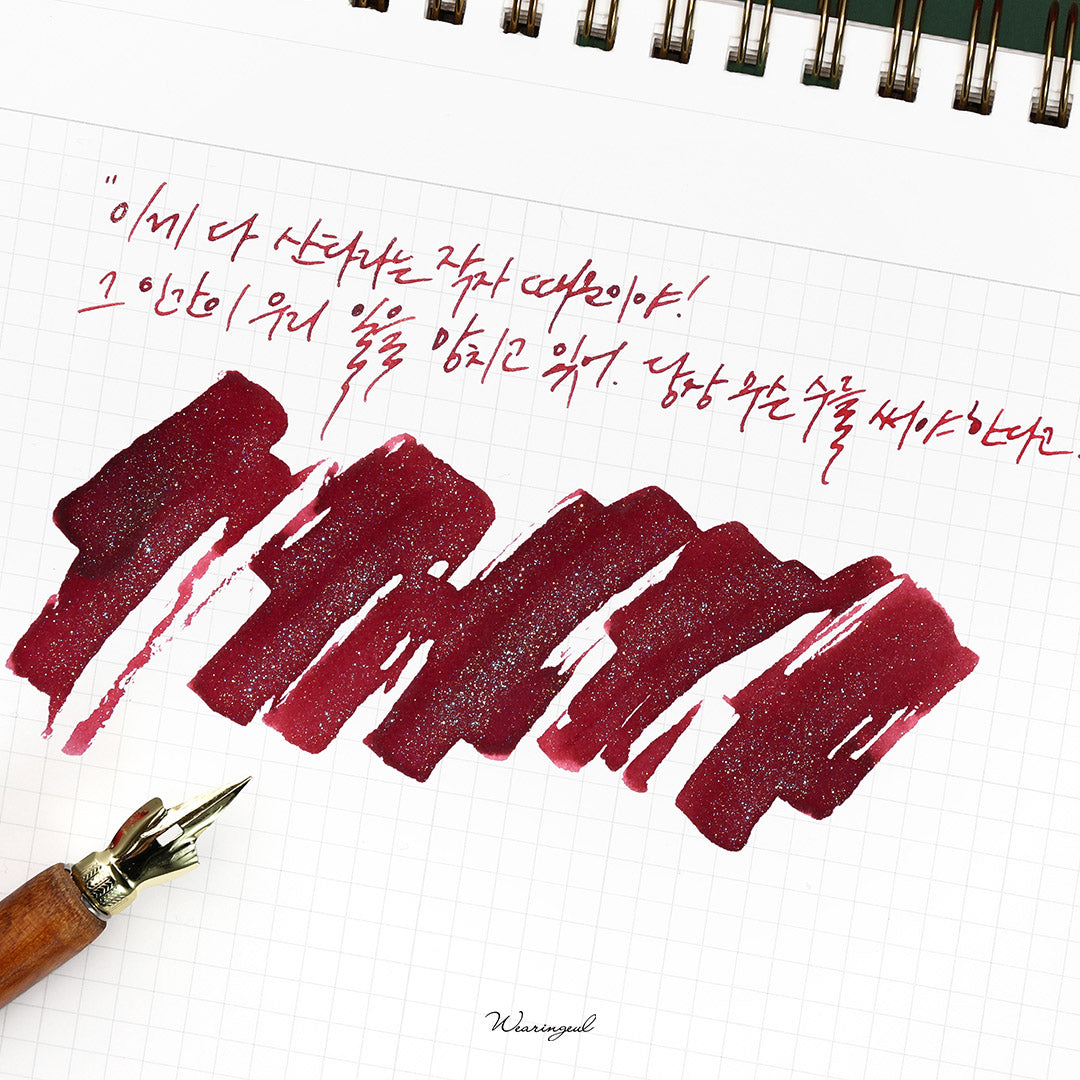 "이게 다 산타라는 작자 때문이야!
그 인간이 우리 일을 망치고 있어. 당장 무슨 수를 써야 한다고.
Wearingeul